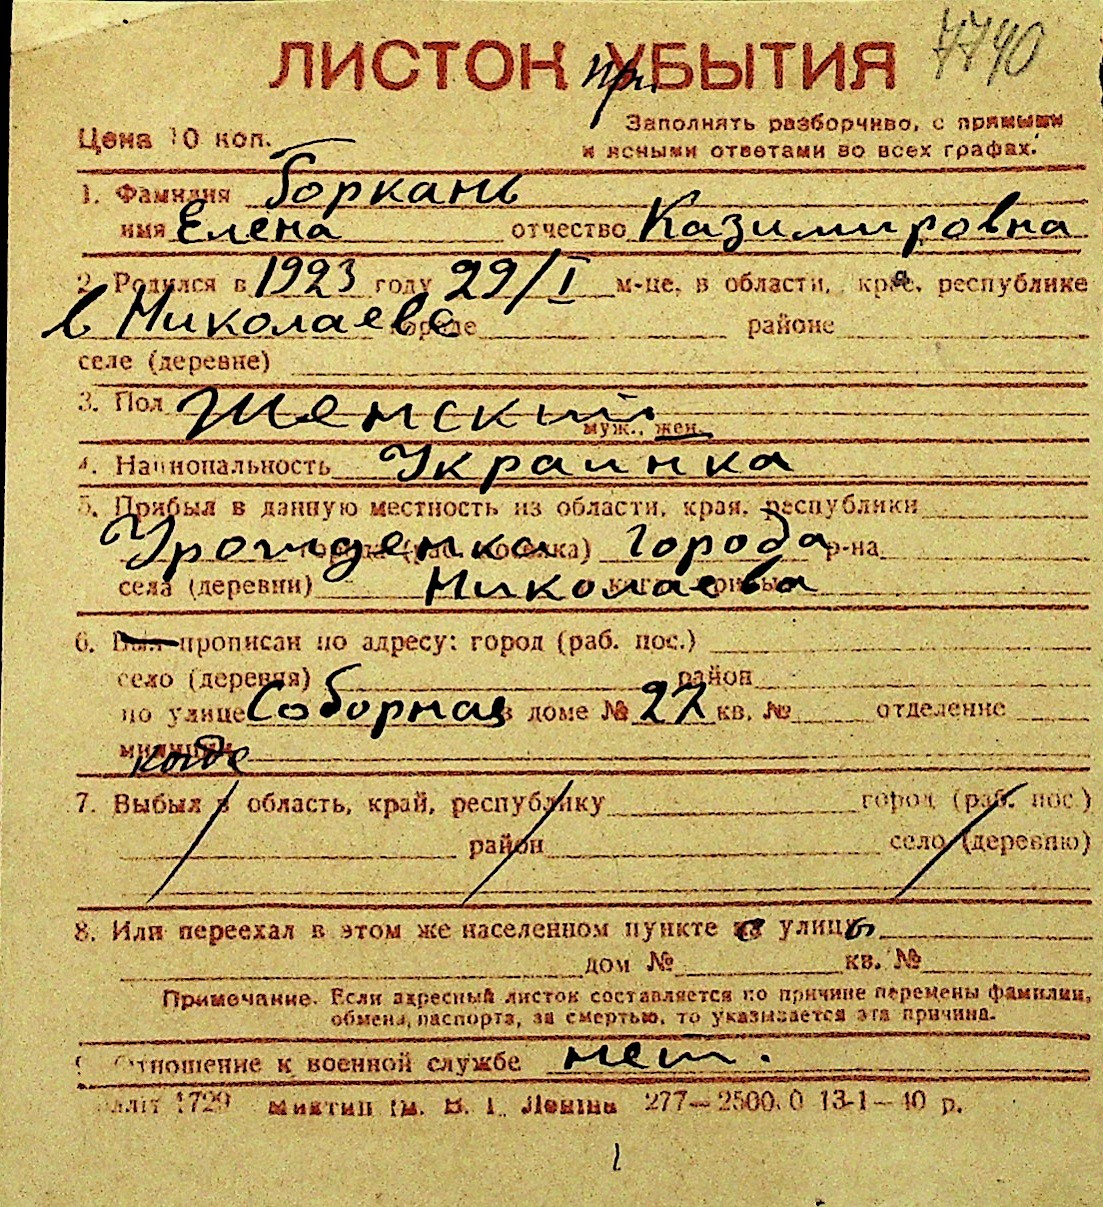 7740
ЛИСТОК УБЫТИЯ
При
Цена 10 коп.
Заполнять разборчиво, с прямыми
и ясными ответами во всех графах.
1. Фамилия Боркань
имя Елена отчество Казимировна
2. Родился в 1923 году 29/I м-це, в области, крае, республике
в Николаеве городе районе
селе (деревне)
3. Пол Женский
муж., жен.
4. Национальность Украинка
5. Прибыл в данную местность из области, края, республики
Урожденка города (раб. поселка) города р-на
села (деревни) Николаева
6. Был прописан по адресу: город (раб. пос.)
село (деревня) район
по улице Соборная в доме № 27 кв. № отделение
милиции
7. Выбыл в область, край, республику город (раб. пос.)
район село (деревню)
8. Или переехал в этом же населенном пункте с улицы
дом № кв. №
Примечание. Если адресный листок составляется по причине перемены фамилии,
обмена паспорта, за смертью, то указывается эта причина.
9. Отношение к военной службе нет.
1729 им. В. І. Леніна 277—2500.0 13-1—40 р.
1